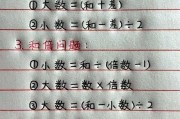 ①大数=(和-差)
②大数=(和+差)÷2
3.和倍问题:
①小数=和÷(倍数-1)
②大数=数×倍数
③大数=(和-小数)÷2